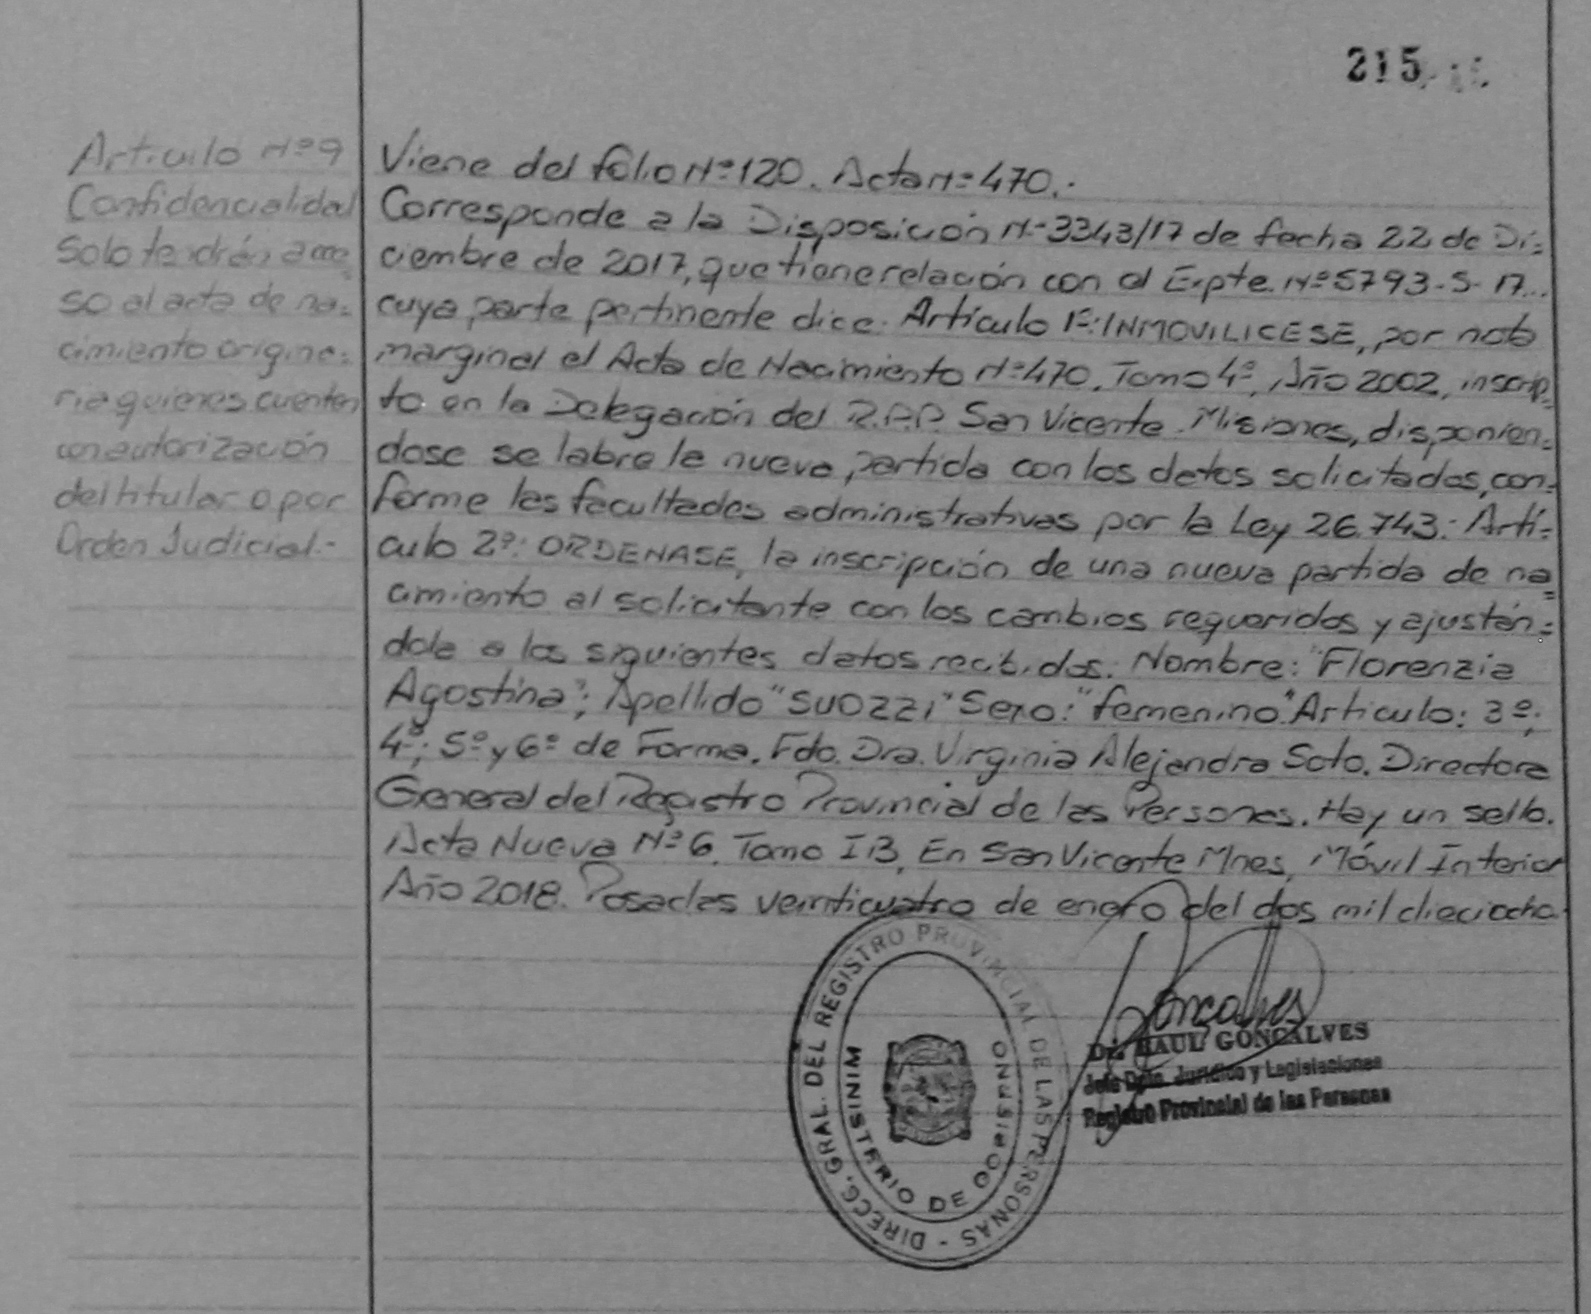 215
Artículo Nº9
Confidencialidad
Solo tendrán acce
so al acta de na=
cimiento origina=
ria quienes cuenten
con autorización
del titular o por
Orden Judicial.-
Viene del folio Nº120. Acta Nº470.-
Corresponde a la Disposición Nº3343/17 de fecha 22 de Di=
ciembre de 2017, que tiene relación con el Expte. Nº5793-S-17...
cuya parte pertinente dice: Artículo 1º: INMOVILICESE, por nota
marginal el Acta de Nacimiento Nº470, Tomo 4º, Año 2002, inscrip
ta en la Delegación del R.P.P. San Vicente. Misiones, disponien=
dose se labre la nueva partida con los datos solicitados, con=
forme las facultades administrativas por la Ley 26.743.- Artí=
culo 2º: ORDENASE, la inscripción de una nueva partida de na=
cimiento al solicitante con los cambios requeridos y ajustán=
dola a los siguientes datos recibidos: Nombre: "Florenzia
Agostina"; Apellido "SUOZZI" Sexo: "femenino" Artículo: 3º;
4º; 5º y 6º de Forma. Fdo. Dra. Virginia Alejandra Soto. Directora
General del Registro Provincial de las Personas. Hay un sello.
Acta Nueva Nº6. Tomo IB, En San Vicente Mnes, Móvil Interior
Año 2018. Posadas veinticuatro de enero del dos mil dieciocho.
DIRECC. GRAL. DEL REGISTRO PROVINCIAL DE LAS PERSONAS -
MINISTERIO DE GOBIERNO
Goncalves
Dr. RAUL GONCALVES
Jefe Dpto. Jurídico y Legislaciones
Registro Provincial de las Personas